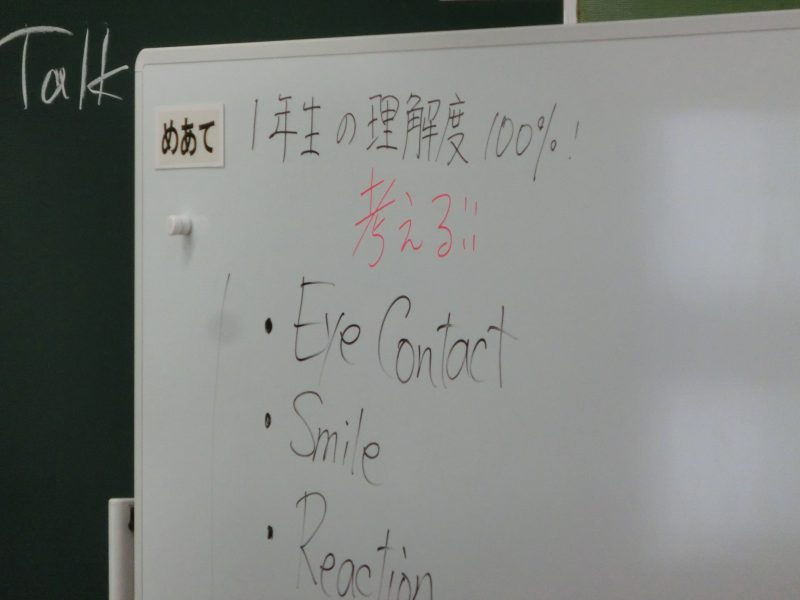 Talk
めあて 1年生の理解度100%!
考える!!
・Eye Contact
・Smile
・Reaction